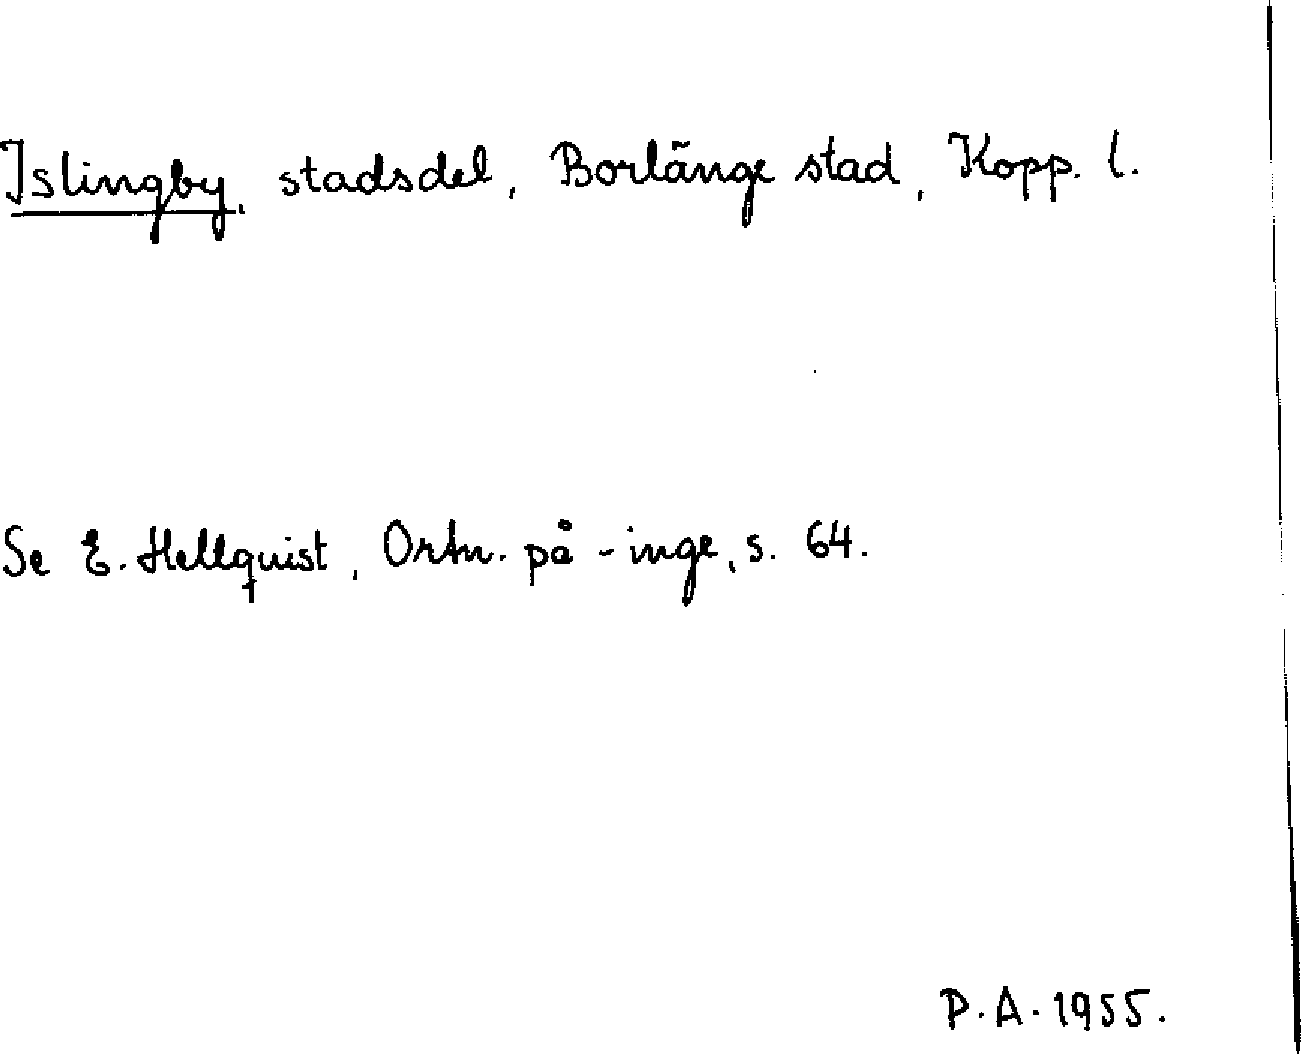 Islingby, stadsdel, Borlänge stad, Kopp. l.
Se E. Hellquist, Ortn. på -inge, s. 64.
P.A. 1955.